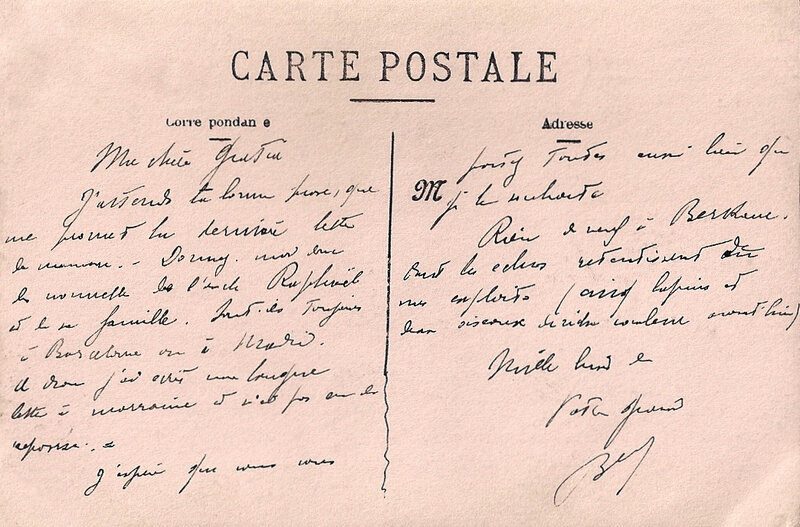 CARTE POSTALE
Corre pondan e
Adresse
Ma chère
J'attends ta bonne prose, que
me promet la dernière lettre
de maman. - Donnez-moi donc
de l'oncle Raphaël
et de sa famille. Sont-ils toujours
à Barcelone ou à Madrid.
j'ai écrit une longue
lettre à marraine et n'ai pas eu de
réponse. -
J'espère que vous vous
M
portez toutes aussi bien que
je le souhaite
Rien de neuf à Berkane.
dont les échos retentissent de
mes exploits (cinq lapins et
deux oiseaux
Mille
Votre grand